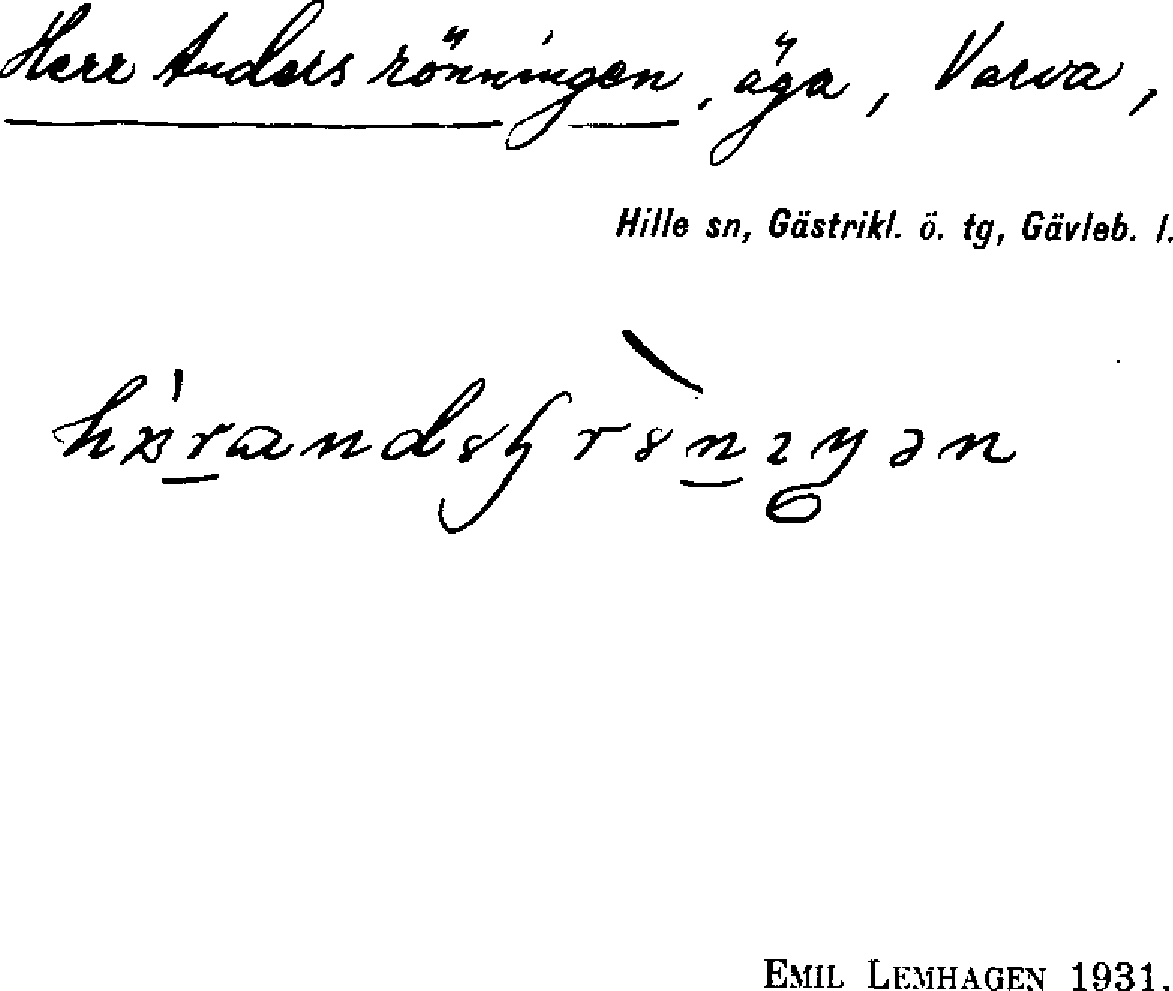 Herr Anders rönningen, äga, Varva,
Hille sn, Gästrikl. ö. tg, Gävleb. l.
EMIL LEMHAGEN 1931.